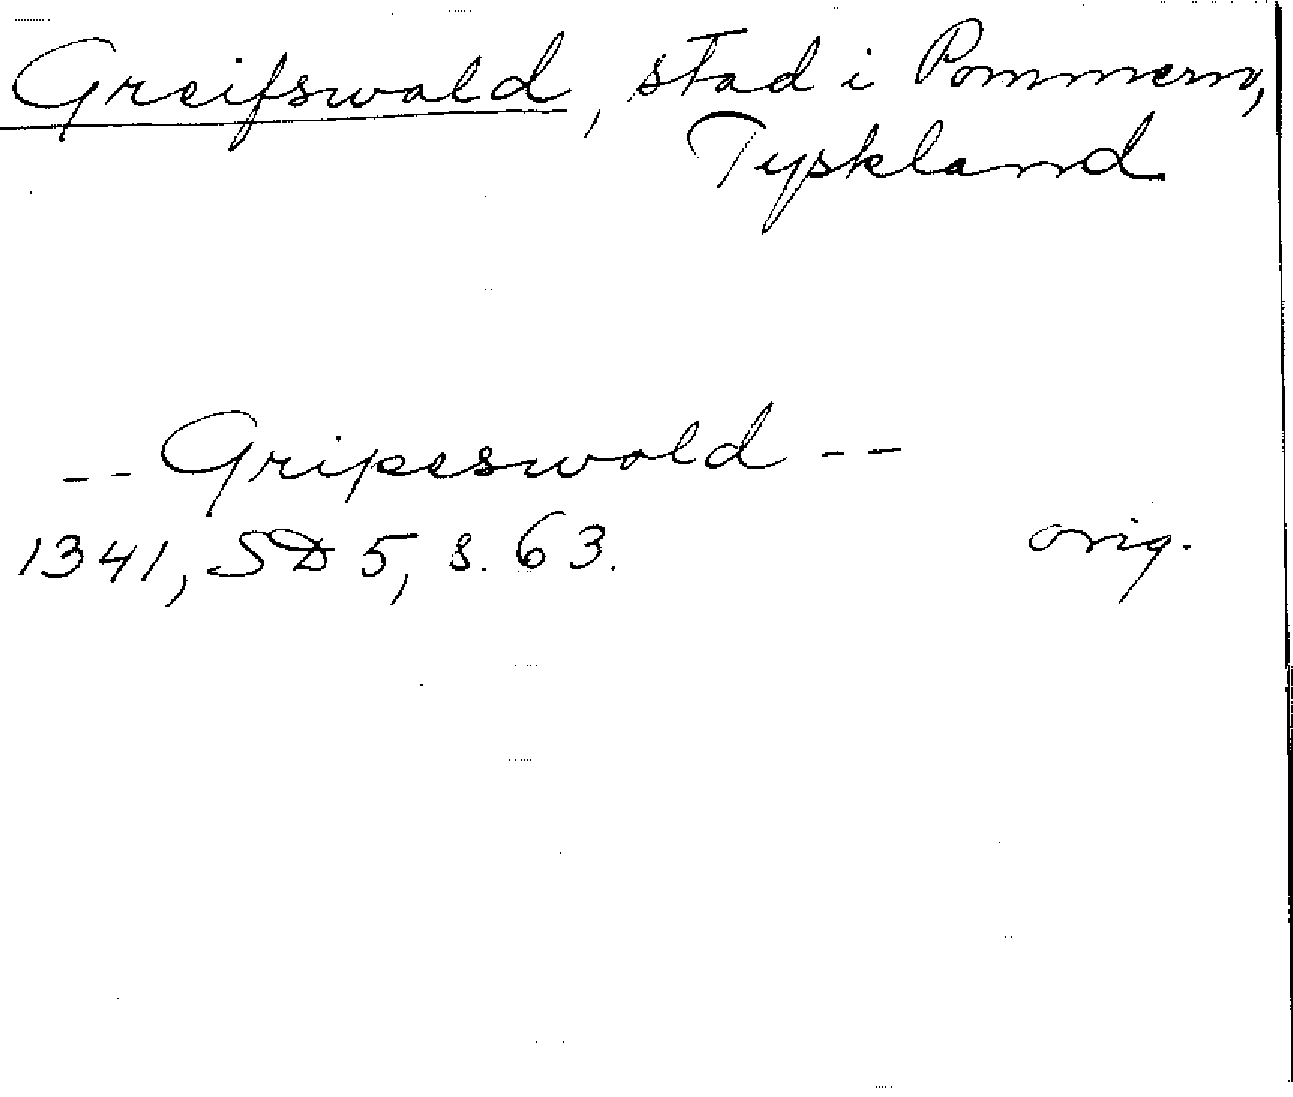 Greifswald, stad i Pommern,
Tyskland
-- Gripeswold --
1341, SD 5, s. 63. orig.